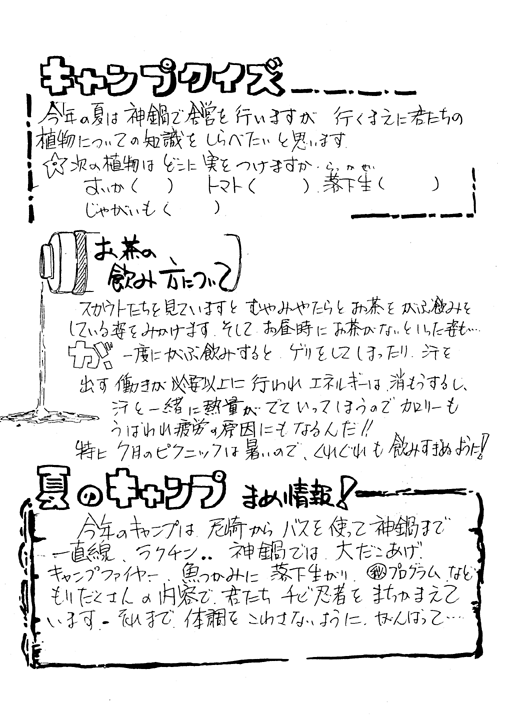 キャンプクイズ
今年の夏は神鍋で舎営を行いますが 行くまえに君たちの
植物についての知識をしらべたいと思います.
☆次の植物はどこに実をつけますか.
すいか(　) トマト(　). 落下生(　)
らっかせい
じゃがいも(　)
お茶の
飲み方について
スカウトたちを見ていますと むやみやたらとお茶をがぶ飲みを
している姿をみかけます. そして お昼時にお茶がないといった姿も…
が! 一度にがぶ飲みすると、ゲリをしてしまったり、汗を
出す働きが必要以上に行われ エネルギーは消もうするし、
汗と一緒に熱量がでていってしまうので カロリーも
うばわれ疲労の原因にもなるんだ!!
特に 7月のピクニックは暑いので、くれぐれも飲みすぎぬように!
夏のキャンプ まめ情報!
今年のキャンプは 尼崎から バスを使って神鍋まで
一直線、ラクチン.. 神鍋では 大だこあげ
キャンプファイヤー、魚つかみに 落下生がり、㊙プログラム など
もりだくさんの内容で、君たち チビ忍者を まちかまえて
います. それまで 体調を こわさないように、がんばって…